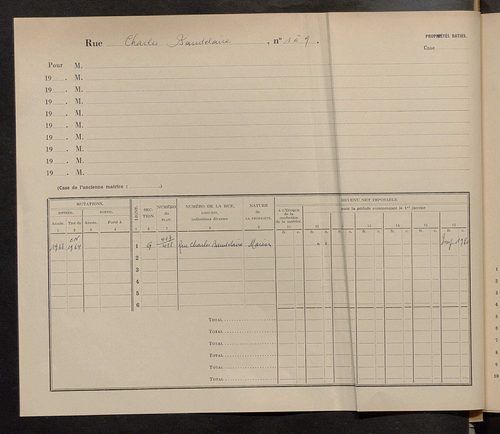 Rue Charles Baudelaire, n° 1 à 9.
PROPRIÉTÉS BATIES.
Case
Pour M.
19 . M.
19 . M.
19 . M.
19 . M.
19 . M.
19 . M.
19 . M.
19 . M.
(Case de l'ancienne matrice : )
MUTATIONS.
ENTRÉE. SORTIE.
Année. Tiré de Année. Porté à
LIGNE.
SECTION
NUMÉRO du PLAN.
NUMÉRO DE LA RUE,
indications diverses
NATURE de LA PROPRIÉTÉ.
A L'ÉPOQUE de la confection de la matrice.
REVENU NET IMPOSABLE
pour la période commençant le 1er janvier
1968 CN 1964 1 G Rue Charles Baudelaire Maison Imp. 1968
2
3
4
5
6
TOTAL
TOTAL
TOTAL
TOTAL
TOTAL
TOTAL
1
2
3
4
5
6
7
8
9
10